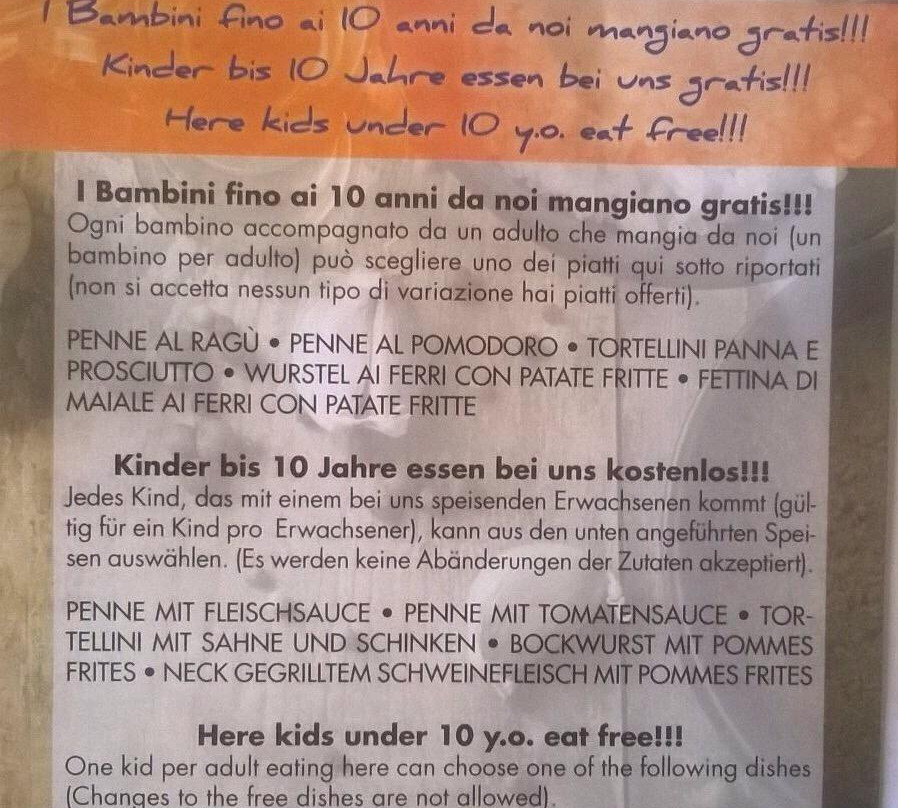 I Bambini fino ai 10 anni da noi mangiano gratis!!!
Kinder bis 10 Jahre essen bei uns gratis!!!
Here kids under 10 y.o. eat free!!!
I Bambini fino ai 10 anni da noi mangiano gratis!!!
Ogni bambino accompagnato da un adulto che mangia da noi (un
bambino per adulto) può scegliere uno dei piatti qui sotto riportati
(non si accetta nessun tipo di variazione hai piatti offerti).
PENNE AL RAGÙ • PENNE AL POMODORO • TORTELLINI PANNA E
PROSCIUTTO • WURSTEL AI FERRI CON PATATE FRITTE • FETTINA DI
MAIALE AI FERRI CON PATATE FRITTE
Kinder bis 10 Jahre essen bei uns kostenlos!!!
Jedes Kind, das mit einem bei uns speisenden Erwachsenen kommt (gül-
tig für ein Kind pro Erwachsener), kann aus den unten angeführten Spei-
sen auswählen. (Es werden keine Abänderungen der Zutaten akzeptiert).
PENNE MIT FLEISCHSAUCE • PENNE MIT TOMATENSAUCE • TOR-
TELLINI MIT SAHNE UND SCHINKEN • BOCKWURST MIT POMMES
FRITES • NECK GEGRILLTEM SCHWEINEFLEISCH MIT POMMES FRITES
Here kids under 10 y.o. eat free!!!
One kid per adult eating here can choose one of the following dishes
(Changes to the free dishes are not allowed).